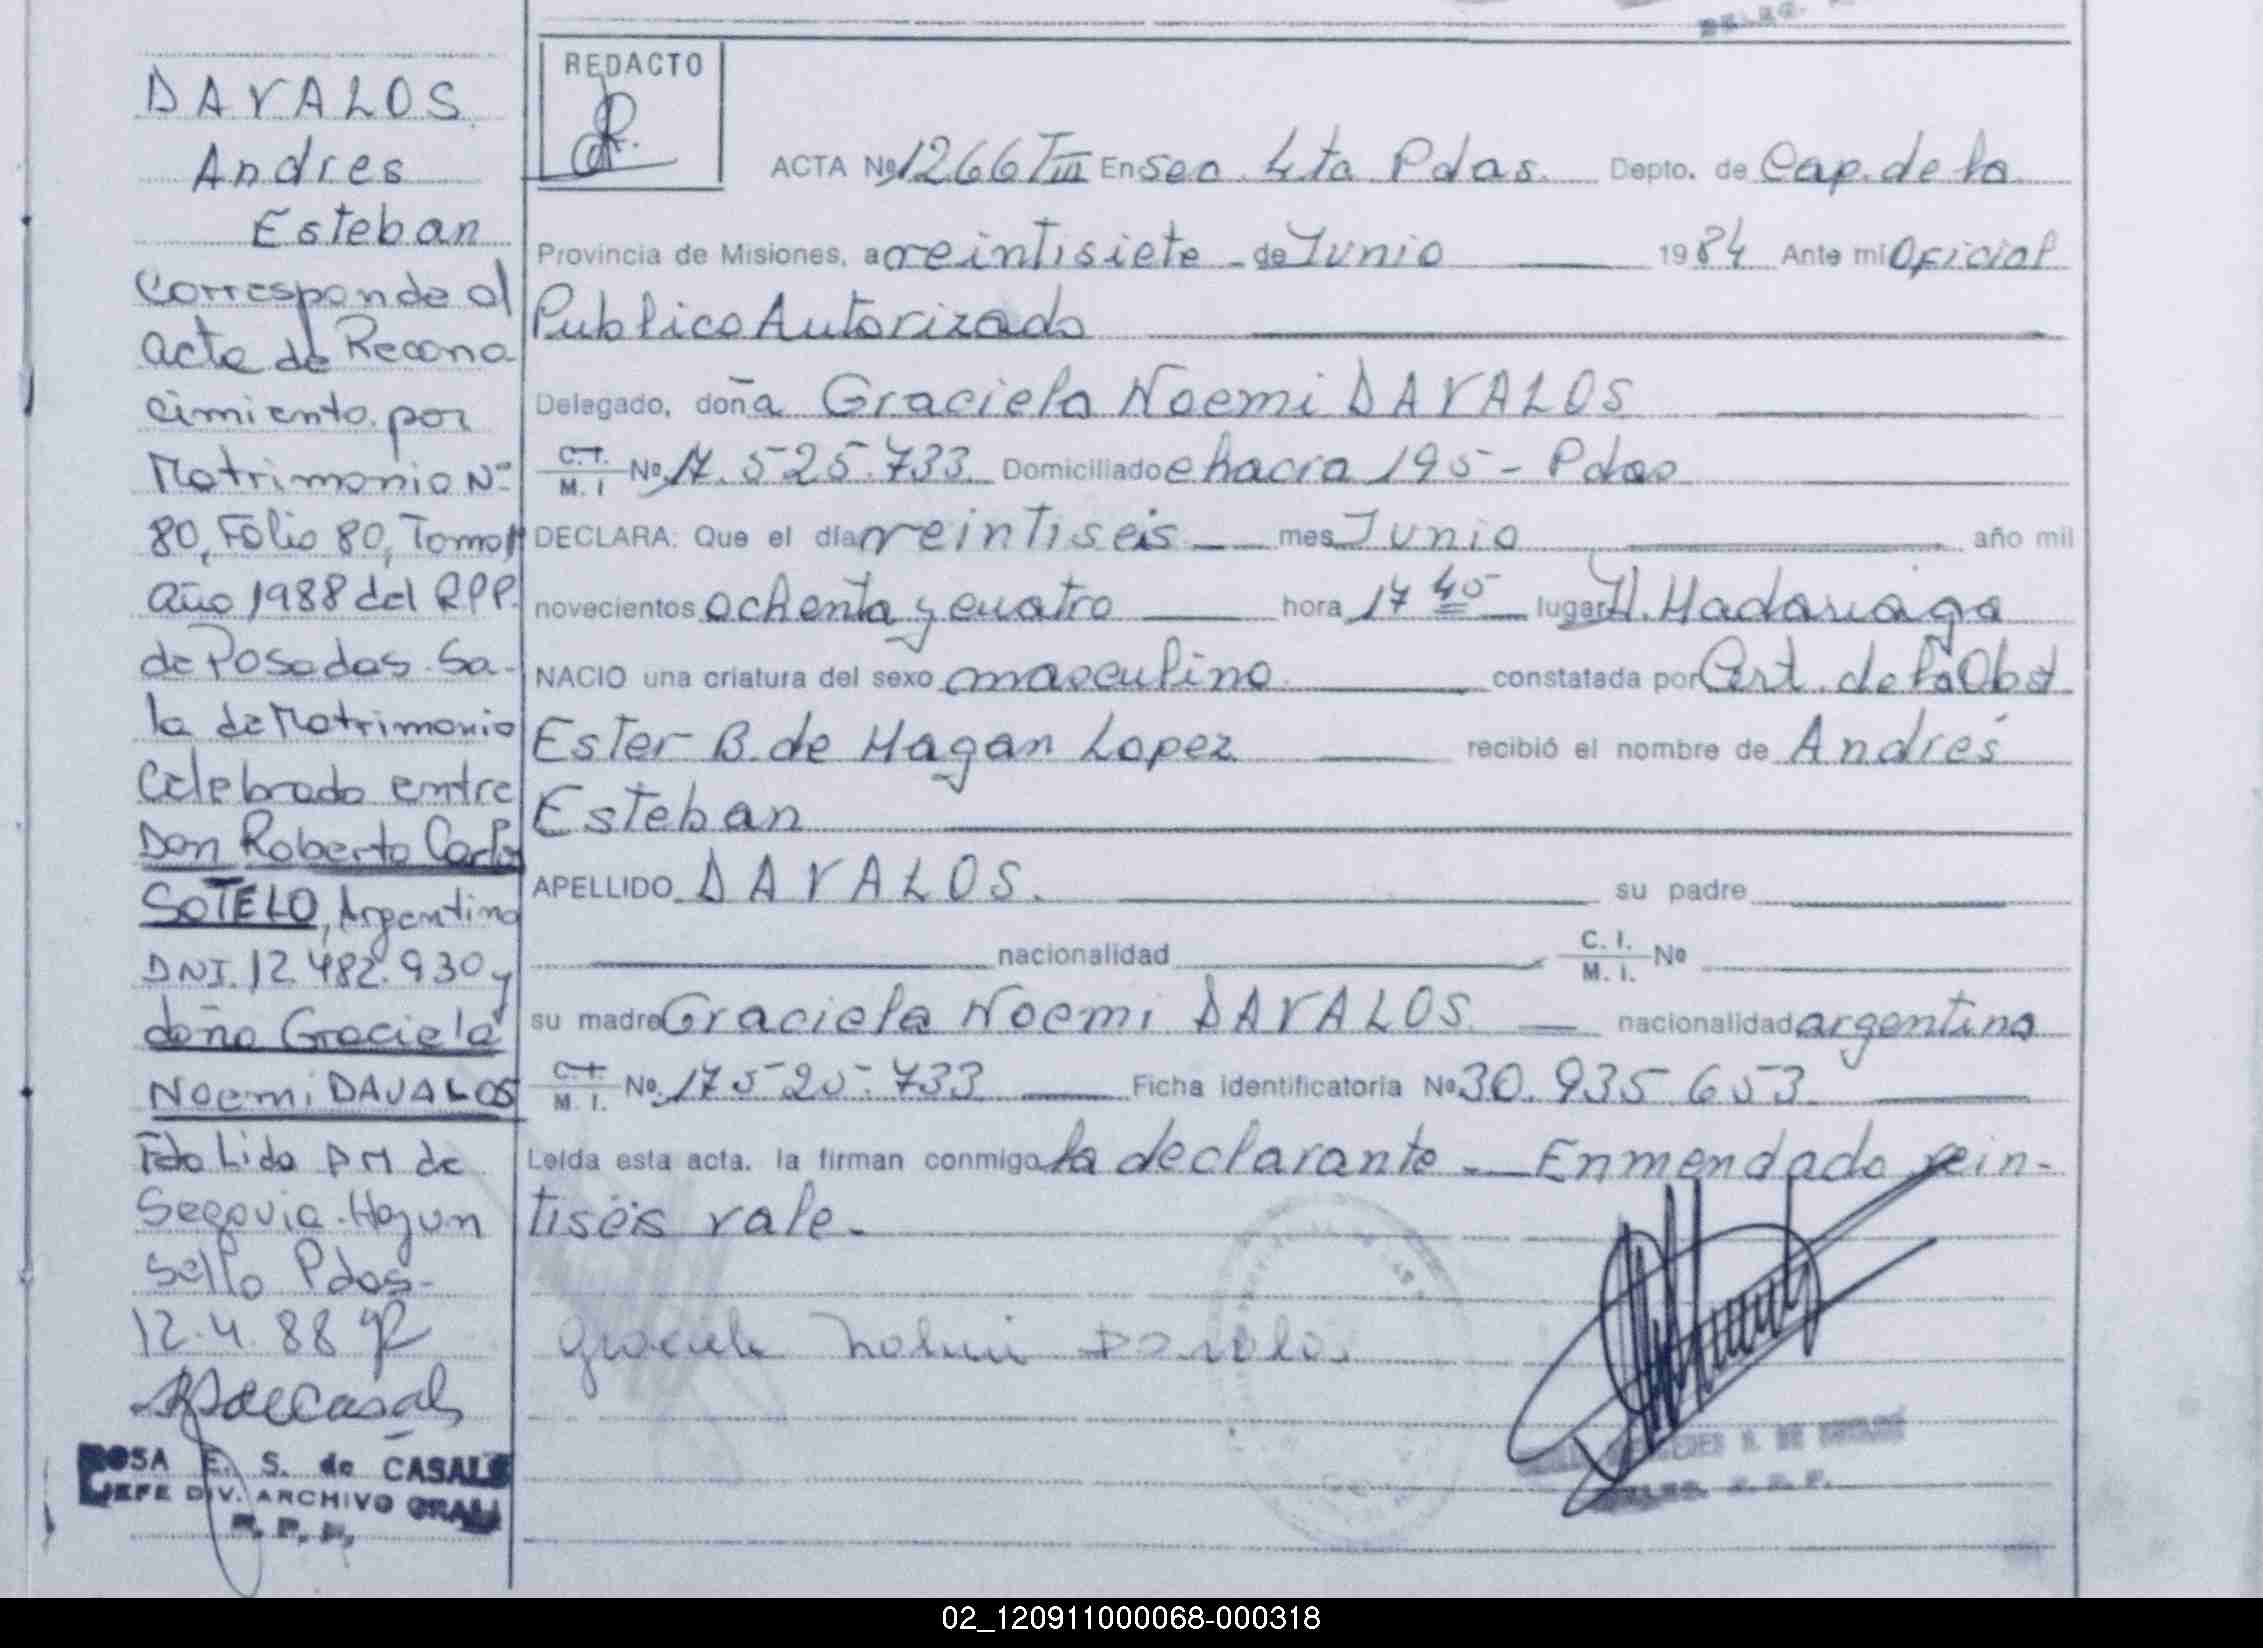 DAVALOS
Andres
Esteban
Corresponde al
acta de Recono
cimiento por
Matrimonio Nº
80, Folio 80, Tomo
Año 1988 del RPP.
de Posadas. Sa-
la de Matrimonio
Celebrado entre
Don Roberto Carlos
SOTELO, Argentino
DNI. 12.482.930 y
doña Graciela
Noemi DAVALOS
Fdo Lido A M de
Segovia. Hay un
Sello Pdas-
12.4.88
ROSA E. S. de CASALS
JEFE DIV. ARCHIVO GRAL
R. P. P.
REDACTO
ACTA Nº 1266 TIII En Sec. 4ta Pdas. Depto. de Cap. de la
Provincia de Misiones, a veintisiete - de Junio 1984 Ante mi Oficial
Publico Autorizado
Delegado, doña Graciela Noemi DAVALOS
C.I. M. I Nº 17.525.733 Domiciliado chacra 195 - Pdas
DECLARA: Que el día veintiseis mes Junio año mil
novecientos ochenta y cuatro hora 17 45 lugar H. Madariaga
NACIO una criatura del sexo masculino constatada por Cert. de la Obst
Ester B. de Magan Lopez recibió el nombre de Andrés
Esteban
APELLIDO DAVALOS. su padre
nacionalidad C. I. M. I. Nº
su madre Graciela Noemi DAVALOS nacionalidad argentina
C.I. M. I. Nº 17.525.733 Ficha identificatoria Nº 30.935.653
Leída esta acta, la firman conmigo la declarante - Enmendado vein-
tiséis vale.
Graciela Noemi Davalos
02_120911000068-000318